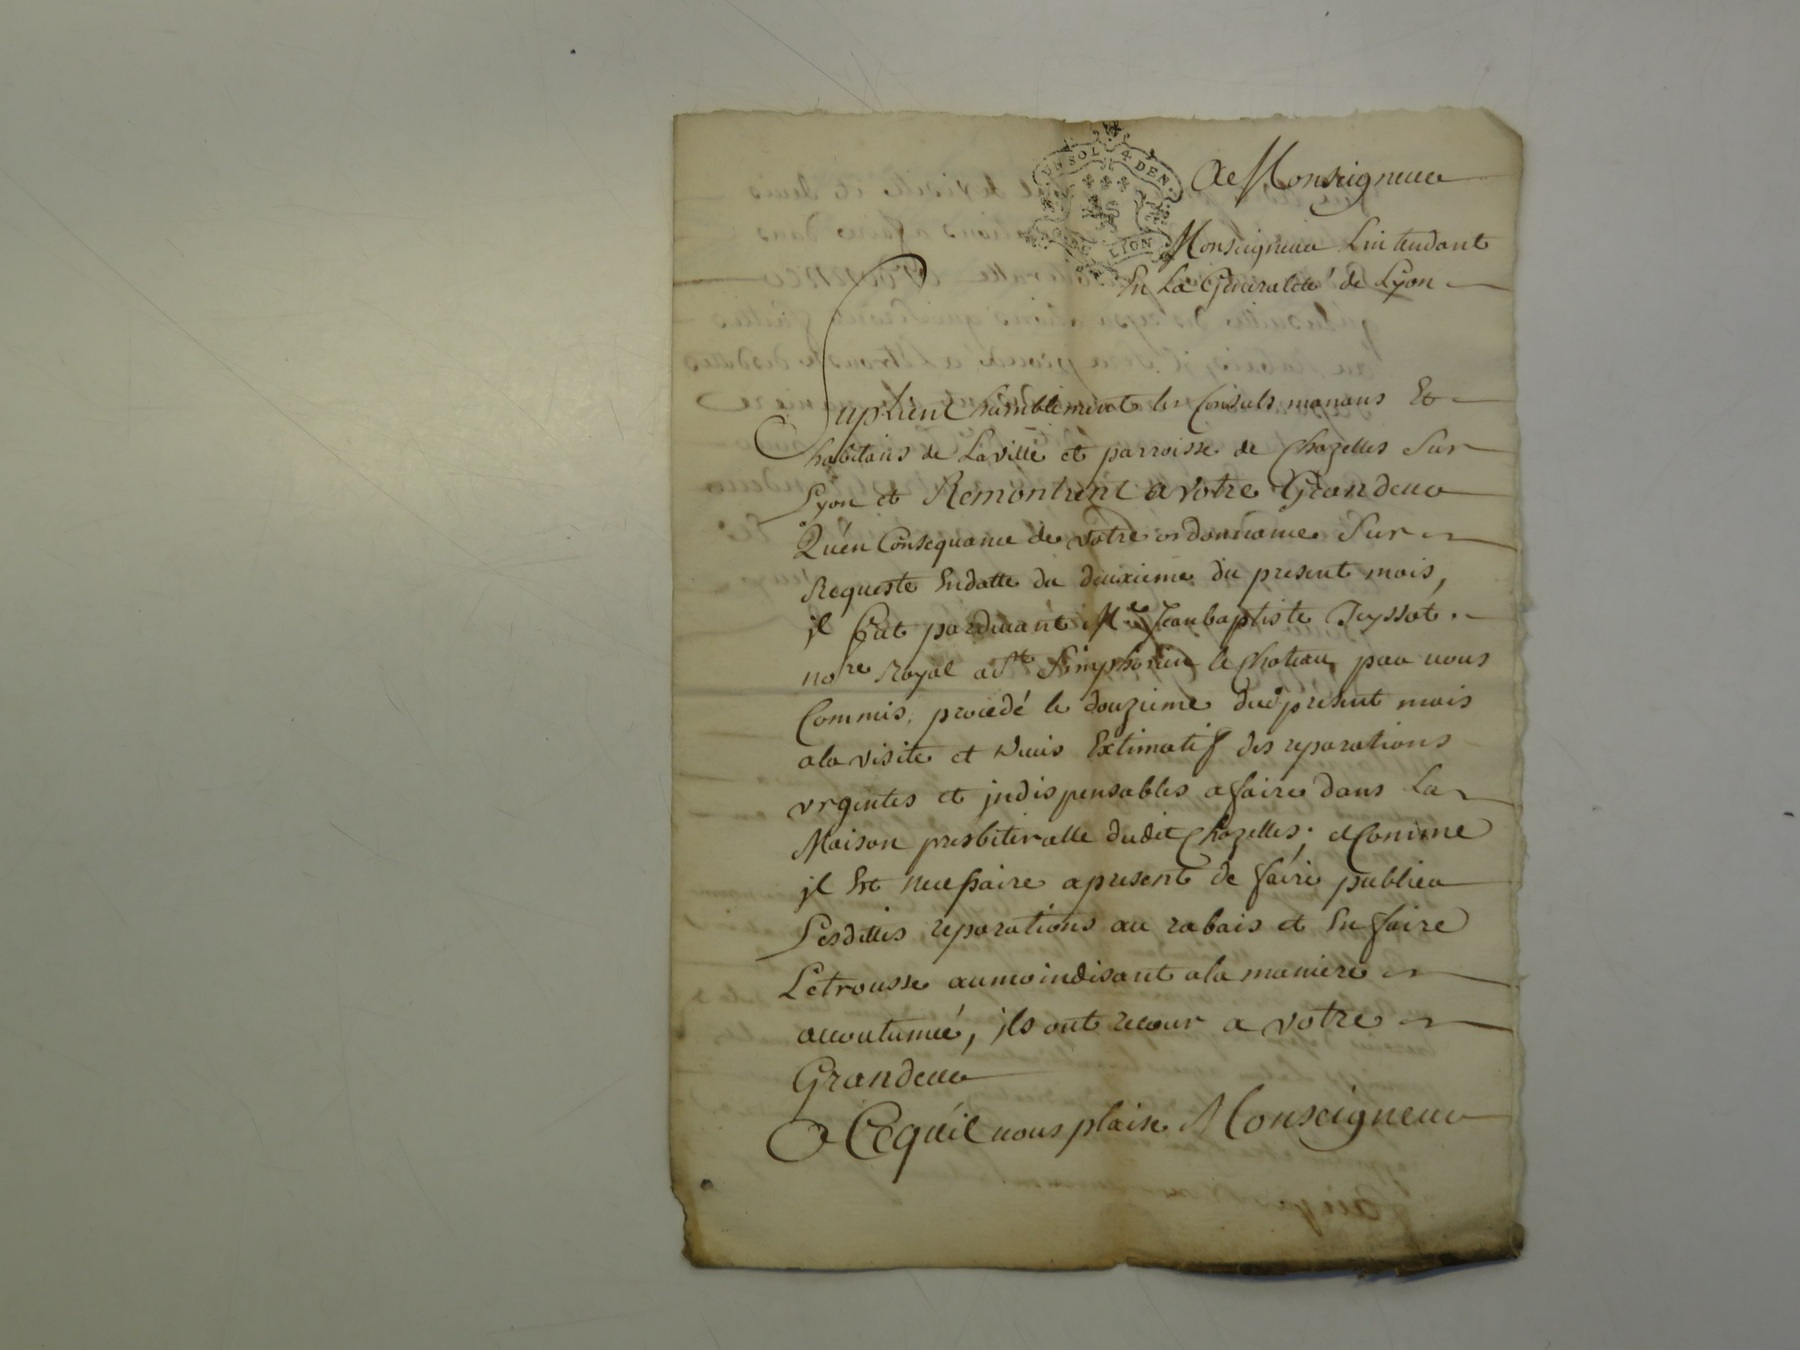 UN SOL 4 DEN.
LION
A Monseigneur
Monseigneur Lintendant
En La Generalité de Lyon
Suplient humblement les Consuls manans Et
habitans de Laville et parroisse de Chazelles Sur
Lyon et Remontrent a votre Grandeur
Qu'en Consequance de votre ordonnance Sur
Requeste Endatte du deuxieme du present mois,
il fut pardevant Me Jean baptiste Teyssot
nore Royal a St Simphorien le Chateau, par vous
Commis, procedé le douzieme dud present mois
a la visite et devis Extimatif des reparations
vrgentes et jndispensables a faire dans La
Maison presbiteralle dudit Chazelles; et Comme
jl Est necessaire a present de faire publier
Lesdittes reparations au rabais et En faire
Letrousse au moindisant a la maniere
accoutumée, jls ont recour a votre
Grandeur
A Ce qu'il vous plaise Monseigneur